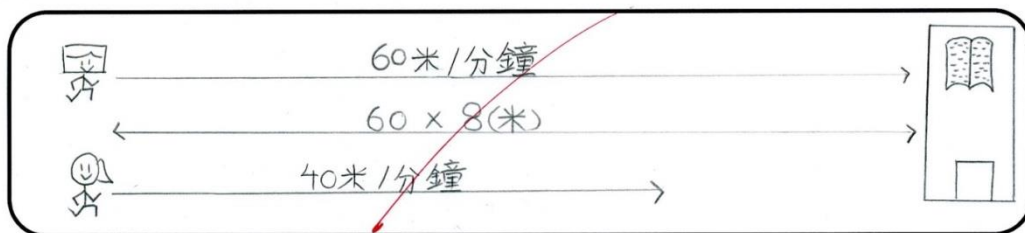 60米/分鐘
60 × 8(米)
40米/分鐘